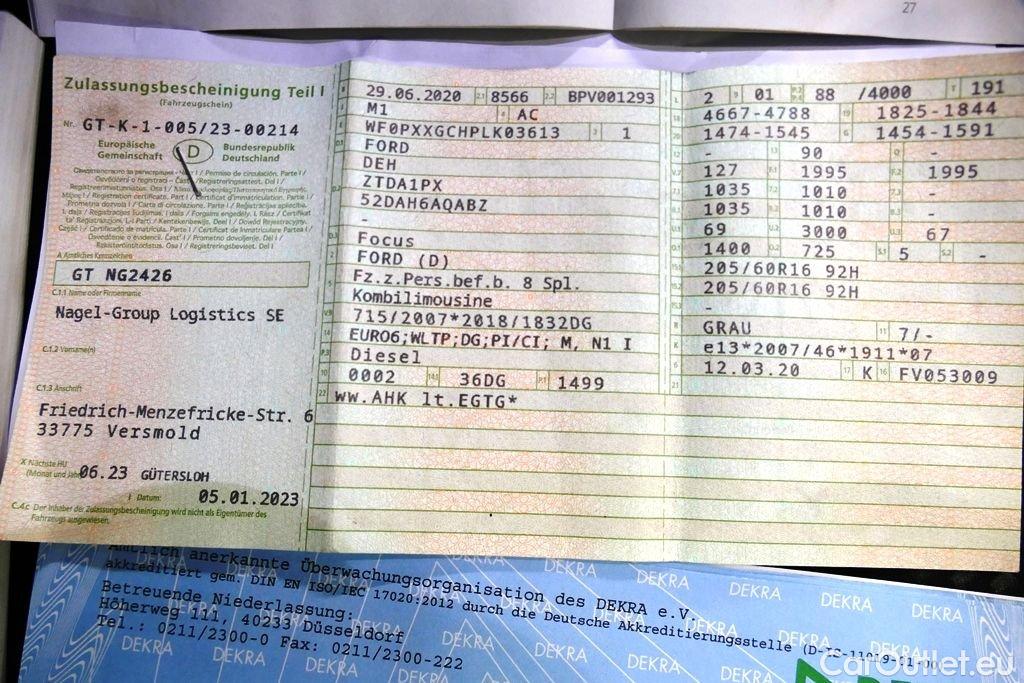 27
Zulassungsbescheinigung Teil I
(Fahrzeugschein)
Nr. GT-K-1-005/23-00214
Europäische Gemeinschaft
D
Bundesrepublik Deutschland
A Amtliches Kennzeichen
GT NG2426
C.1.1 Name oder Firmenname
Nagel-Group Logistics SE
C.1.2 Vorname(n)
C.1.3 Anschrift
Friedrich-Menzefricke-Str. 6
33775 Versmold
X Nächste HU
(Monat und Jahr) 06.23 GÜTERSLOH
I Datum: 05.01.2023
C.4.c Der Inhaber der Zulassungsbescheinigung wird nicht als Eigentümer des
Fahrzeugs ausgewiesen.
B 29.06.2020 2.1 8566 2.2 BPV001293
M1 4 AC
WF0PXXGCHPLK03613 3 1
FORD
DEH
D.2 ZTDA1PX
52DAH6AQABZ
-
D.3 Focus
FORD (D)
5 Fz.z.Pers.bef.b. 8 Spl.
Kombilimousine
V.9 715/2007*2018/1832DG
14 EURO6;WLTP;DG;PI/CI; M, N1 I
P.3 Diesel
10 0002 14.1 36DG P.1 1499
22 ww.AHK lt.EGTG*
L 2 9 01 P.2 88 /4000 T 191
18 4667-4788 19 1825-1844
20 1474-1545 G 1454-1591
12 - 13 90 Q -
V.7 127 F.1 1995 F.2 1995
7.1 1035 7.2 1010 7.3 -
8.1 1035 8.2 1010 8.3 -
U.1 69 U.2 3000 U.3 67
O.1 1400 O.2 725 S.1 5 S.2 -
15.1 205/60R16 92H
15.2 205/60R16 92H
15.3 -
R GRAU 11 7/-
K e13*2007/46*1911*07
6 12.03.20 17 K 16 FV053009
21
Amtlich anerkannte Überwachungsorganisation des DEKRA e.V.
akkreditiert gem. DIN EN ISO/IEC 17020:2012 durch die Deutsche Akkreditierungsstelle (D-IS-11019-01-00
Betreuende Niederlassung:
Höherweg 111, 40233 Düsseldorf
Tel.: 0211/2300-0 Fax: 0211/2300-222
DEKRA
CarOutlet.eu